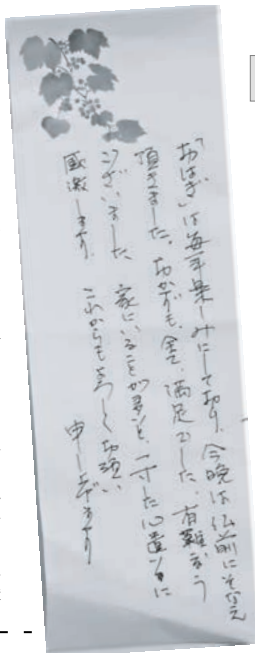 「おはぎ」は毎年楽しみにしており、今晩は仏前にそなえ
頂きました。おかずも全て満足でした。有難う
ございました 家にいることが多いと、一寸した心遣いに
感激します。 これからもよろしくお願い
申し上げます